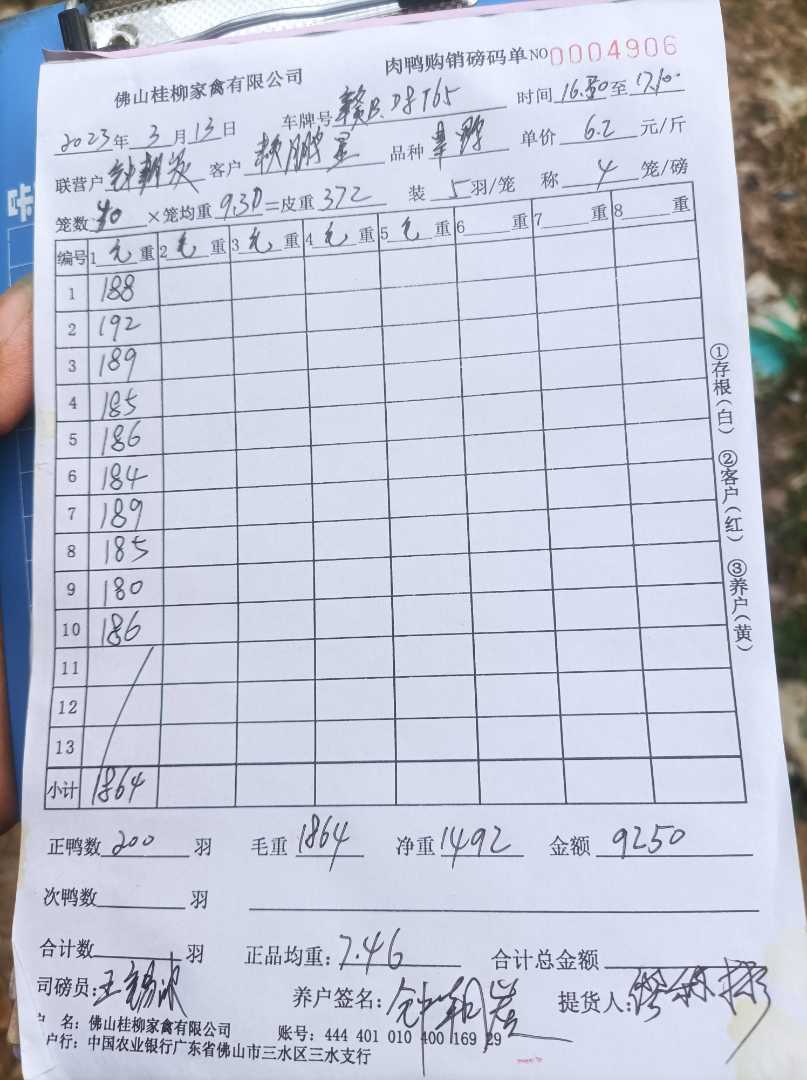 佛山桂柳家禽有限公司
肉鸭购销磅码单 NO 0004906
2023年 3 月 13 日 车牌号 赣B. D8T65 时间 16.50 至 17.10
联营户 客户 赖鹏星 品种 单价 6.2 元/斤
笼数 40 ×笼均重 9.30 =皮重 372 装 5 羽/笼 称 4 笼/磅
编号 1 毛 重 2 毛 重 3 毛 重 4 毛 重 5 毛 重 6 重 7 重 8 重
1 188
2 192
3 189
4 185
5 186
6 184
7 189
8 185
9 180
10 186
11
12
13
小计 1864
①存根(白) ②客户(红) ③养户(黄)
正鸭数 200 羽 毛重 1864 净重 1492 金额 9250
次鸭数 羽
合计数 羽 正品均重: 7.46 合计总金额
司磅员: 养户签名: 提货人:
户 名: 佛山桂柳家禽有限公司 账号: 444 401 010 400 169 29
户行: 中国农业银行广东省佛山市三水区三水支行